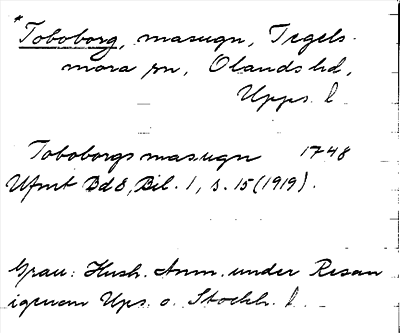 *Toboborg, masugn, Tegels-
mora sn, Olands hd,
Upps. l
Toboborgs masugn 1748
Ufmt Bd 8, Bil. 1, s. 15 (1919).
Grau: Hush. Anm. under Resan
igenom Ups. o. Stockh. l.